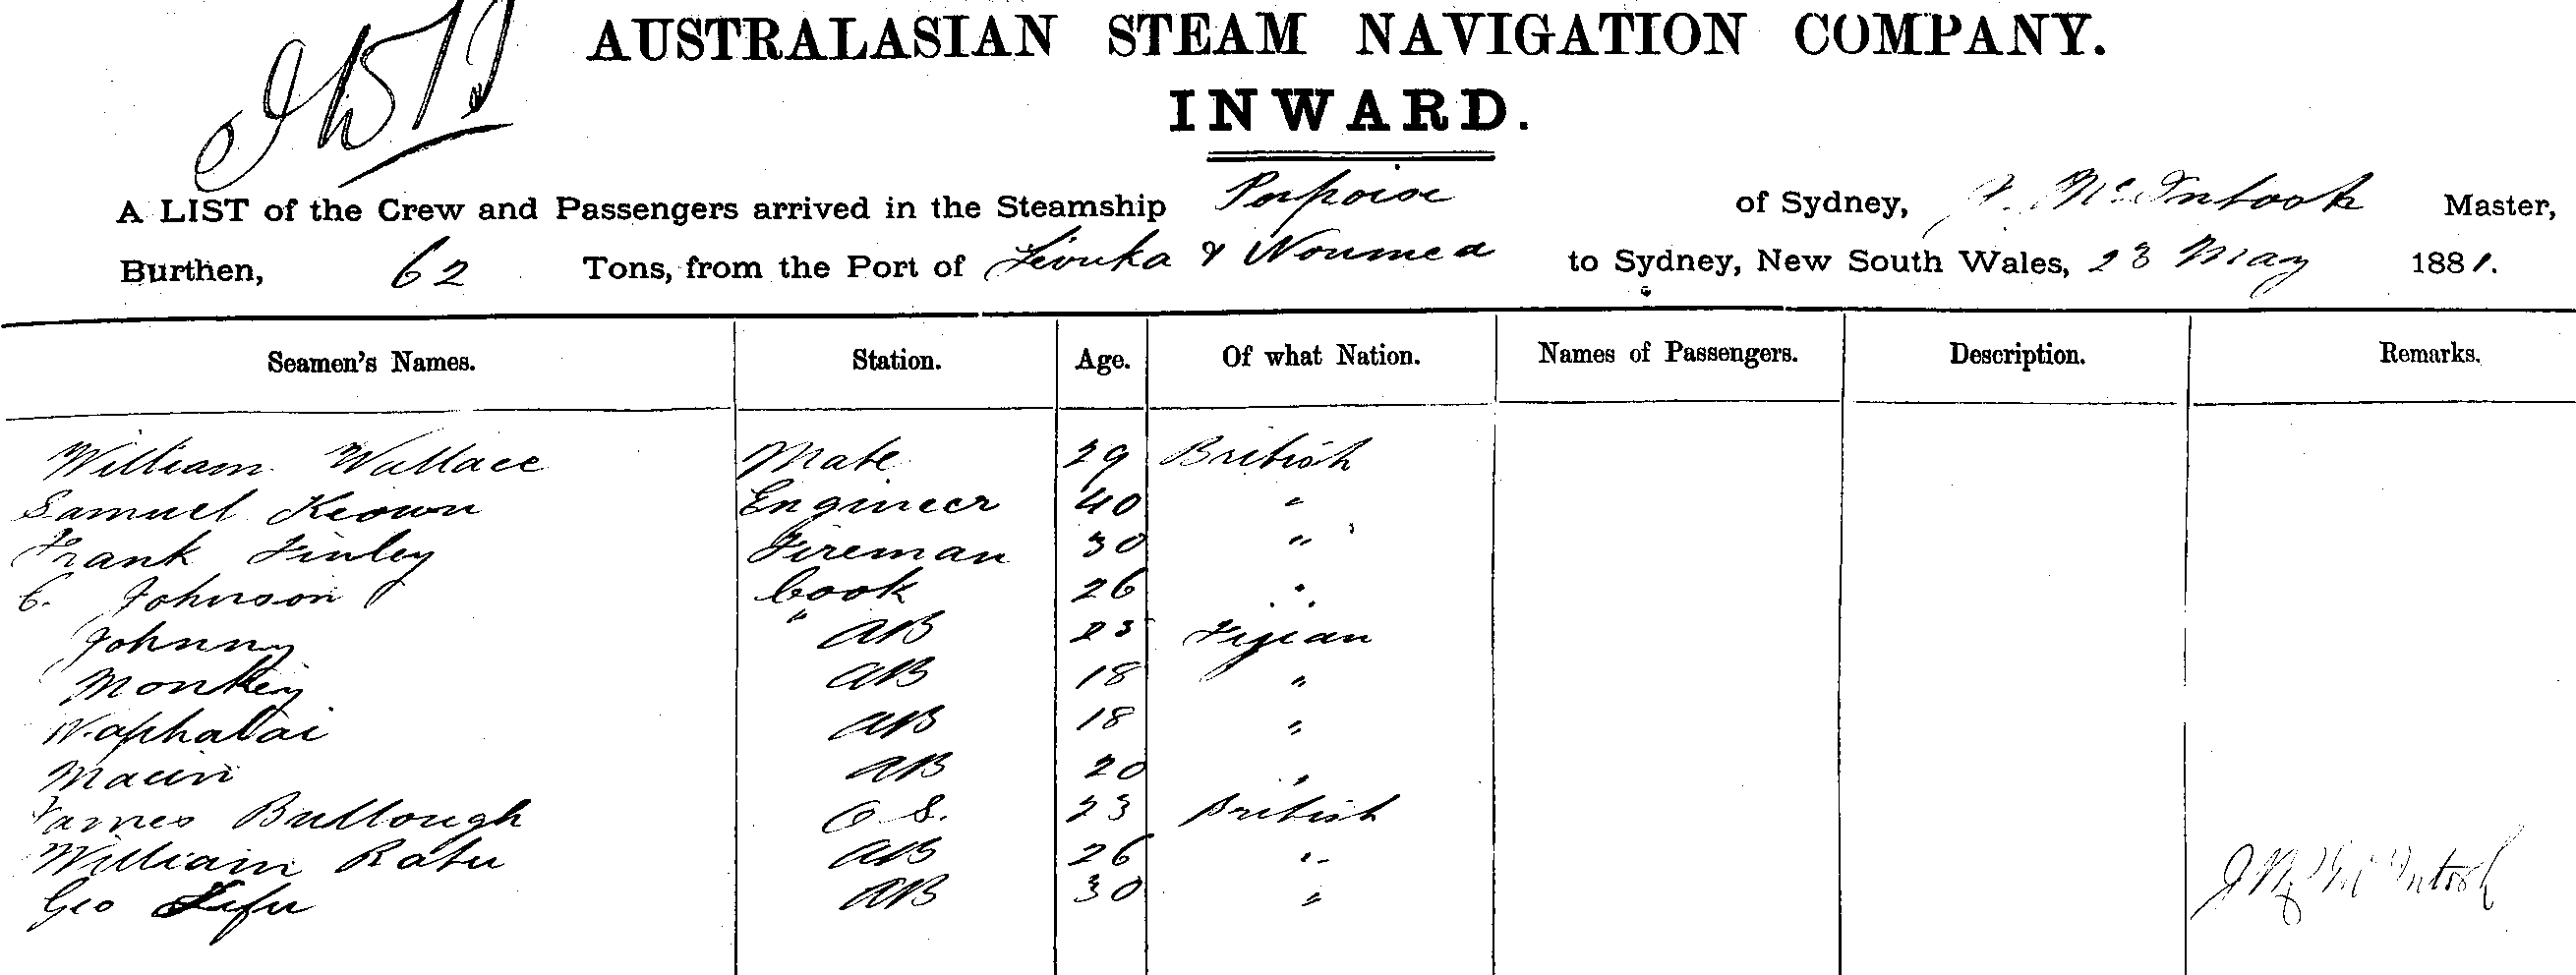 AUSTRALASIAN STEAM NAVIGATION COMPANY.
INWARD.
A LIST of the Crew and Passengers arrived in the Steamship Porpoise of Sydney, J. McIntosh Master,
Burthen, 62 Tons, from the Port of Levuka & Noumea to Sydney, New South Wales, 23 May 1881.
Seamen's Names. Station. Age. Of what Nation. Names of Passengers. Description. Remarks.
William Wallace Mate 29 British
Samuel Keown Engineer 40 "
Frank Finley Fireman 30 "
C. Johnson Cook 26 "
Johnny " AB 23 Fijian
Monkey AB 18 "
Naphalai AB 18 "
AB 20 "
James Bullough O S. 23 British
William Ratu AB 26 "
Geo Lifu AB 30 " McIntosh